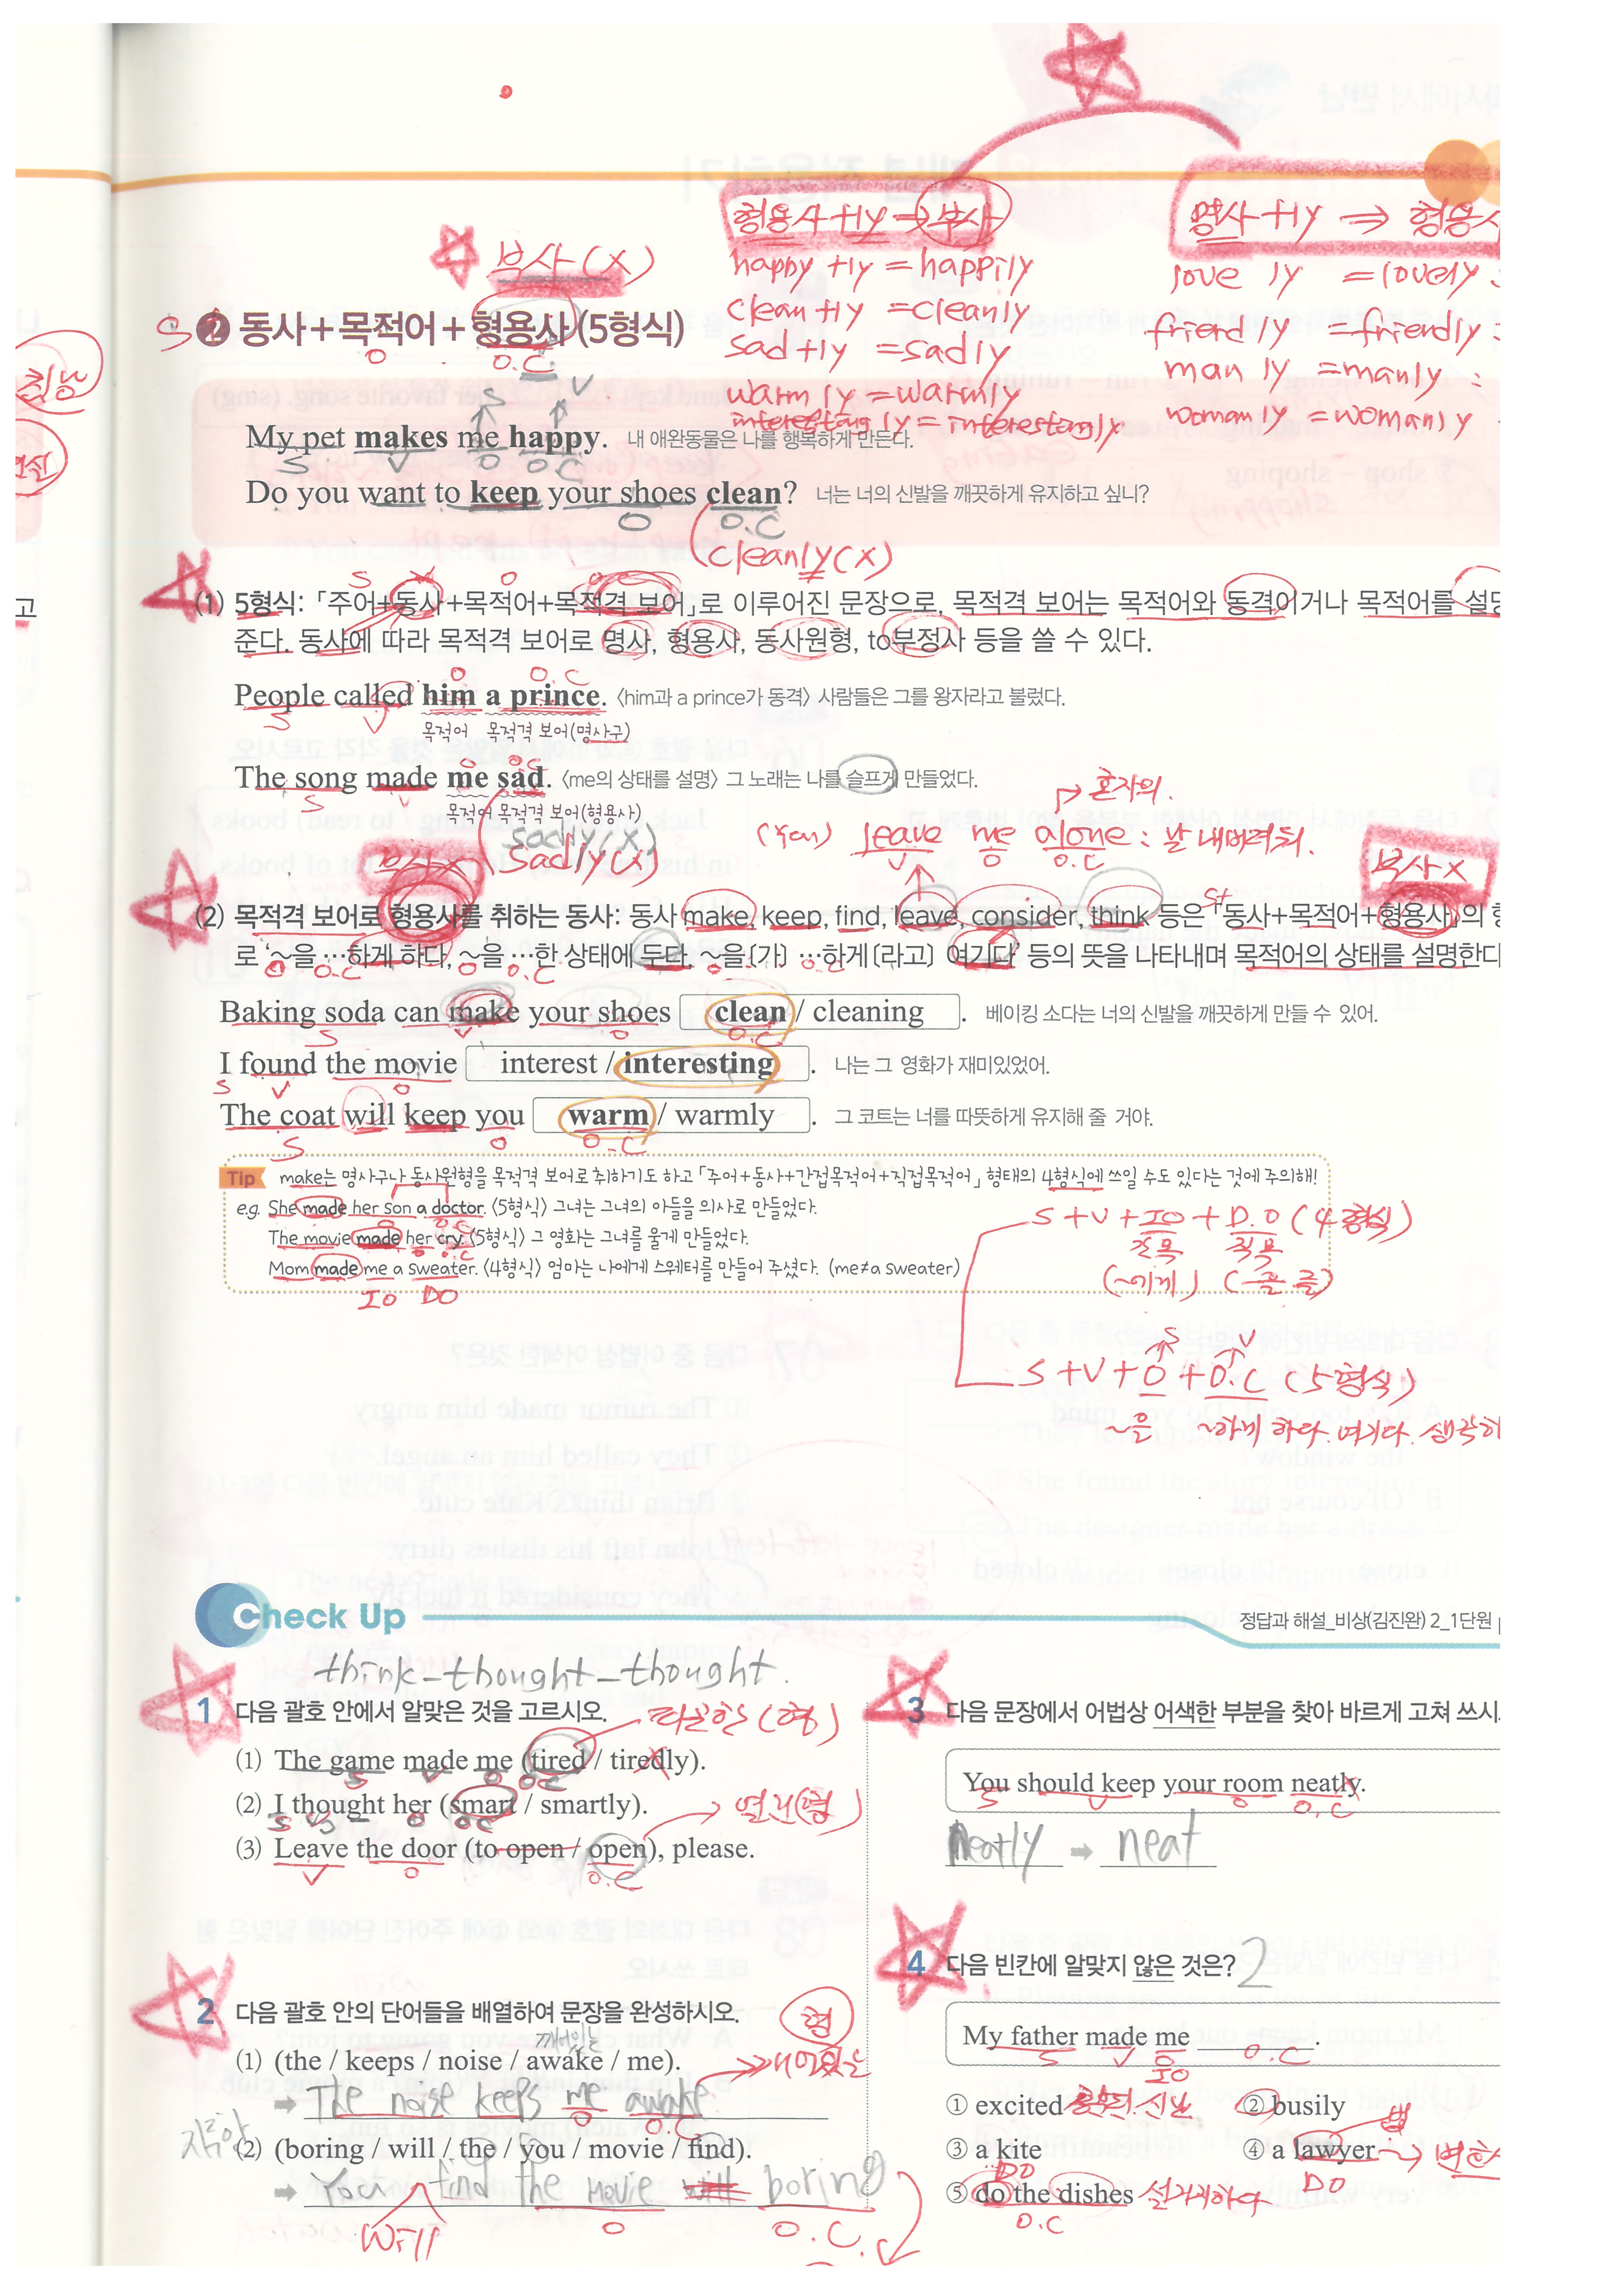 형용사+ly ⇒ 부사
명사+ly ⇒ 형용사
부사(X)
happy +ly = happily
love ly = lovely
clean +ly = cleanly
friend ly = friendly
sad +ly = sadly
man ly = manly
warm ly = warmly
woman ly = womanly
interesting ly = interestingly
❷ 동사+목적어+형용사 (5형식)
O O.C
My pet makes me happy. 내 애완동물은 나를 행복하게 만든다.
S V O O.C
Do you want to keep your shoes clean? 너는 너의 신발을 깨끗하게 유지하고 싶니?
O O.C
cleanly(X)
(1) 5형식: 「주어+동사+목적어+목적격 보어」로 이루어진 문장으로, 목적격 보어는 목적어와 동격이거나 목적어를 설명
준다. 동사에 따라 목적격 보어로 명사, 형용사, 동사원형, to부정사 등을 쓸 수 있다.
O O.C
People called him a prince. 〈him과 a prince가 동격〉 사람들은 그를 왕자라고 불렀다.
S V 목적어 목적격 보어(명사구)
The song made me sad. 〈me의 상태를 설명〉 그 노래는 나를 슬프게 만들었다.
S V 목적어 목적격 보어(형용사)
혼자의.
sadly(X)
(You) leave me alone : 날 내버려둬.
V O O.C
부사X sadly(X)
부사X
(2) 목적격 보어로 형용사를 취하는 동사: 동사 make, keep, find, leave, consider, think 등은 「동사+목적어+형용사」의 형
로 '~을 …하게 하다, ~을 …한 상태에 두다, ~을(가) …하게(라고) 여기다' 등의 뜻을 나타내며 목적어의 상태를 설명한다
Baking soda can make your shoes clean / cleaning . 베이킹 소다는 너의 신발을 깨끗하게 만들 수 있어.
S V O O.C
I found the movie interest / interesting . 나는 그 영화가 재미있었어.
S V O
The coat will keep you warm / warmly . 그 코트는 너를 따뜻하게 유지해 줄 거야.
S O O.C
Tip make는 명사구나 동사원형을 목적격 보어로 취하기도 하고 「주어+동사+간접목적어+직접목적어」 형태의 4형식에 쓰일 수도 있다는 것에 주의해!
e.g. She made her son a doctor. 〈5형식〉 그녀는 그녀의 아들을 의사로 만들었다.
The movie made her cry. 〈5형식〉 그 영화는 그녀를 울게 만들었다.
Mom made me a sweater. 〈4형식〉 엄마는 나에게 스웨터를 만들어 주셨다. (me≠a sweater)
IO DO
S+V+IO+D.O (4형식)
간목 직목
(~에게) (~을 를)
S V
S+V+O+O.C (5형식)
~을 ~하게 하다. 여기다. 생각하
Check Up
정답과 해설_비상(김진완) 2_1단원
think-thought-thought.
1 다음 괄호 안에서 알맞은 것을 고르시오.
피곤한(형)
(1) The game made me (tired / tiredly).
S V O O.C
(2) I thought her (smart / smartly).
S V O O.C
열린(형)
(3) Leave the door (to open / open), please.
V O O.C
2 다음 괄호 안의 단어들을 배열하여 문장을 완성하시오.
형
깨어있는
(1) (the / keeps / noise / awake / me).
➡ The noise keeps me awake.
O O.C
(2) (boring / will / the / you / movie / find).
➡ You find the movie will boring
will O O.C.
3 다음 문장에서 어법상 어색한 부분을 찾아 바르게 고쳐 쓰시
You should keep your room neatly.
S V O O.C
neatly ➡ neat
4 다음 빈칸에 알맞지 않은 것은? 2
My father made me ________.
S V O O.C
IO
① excited ② busily
③ a kite ④ a lawyer
DO DO
⑤ do the dishes 설거지하다
O.C